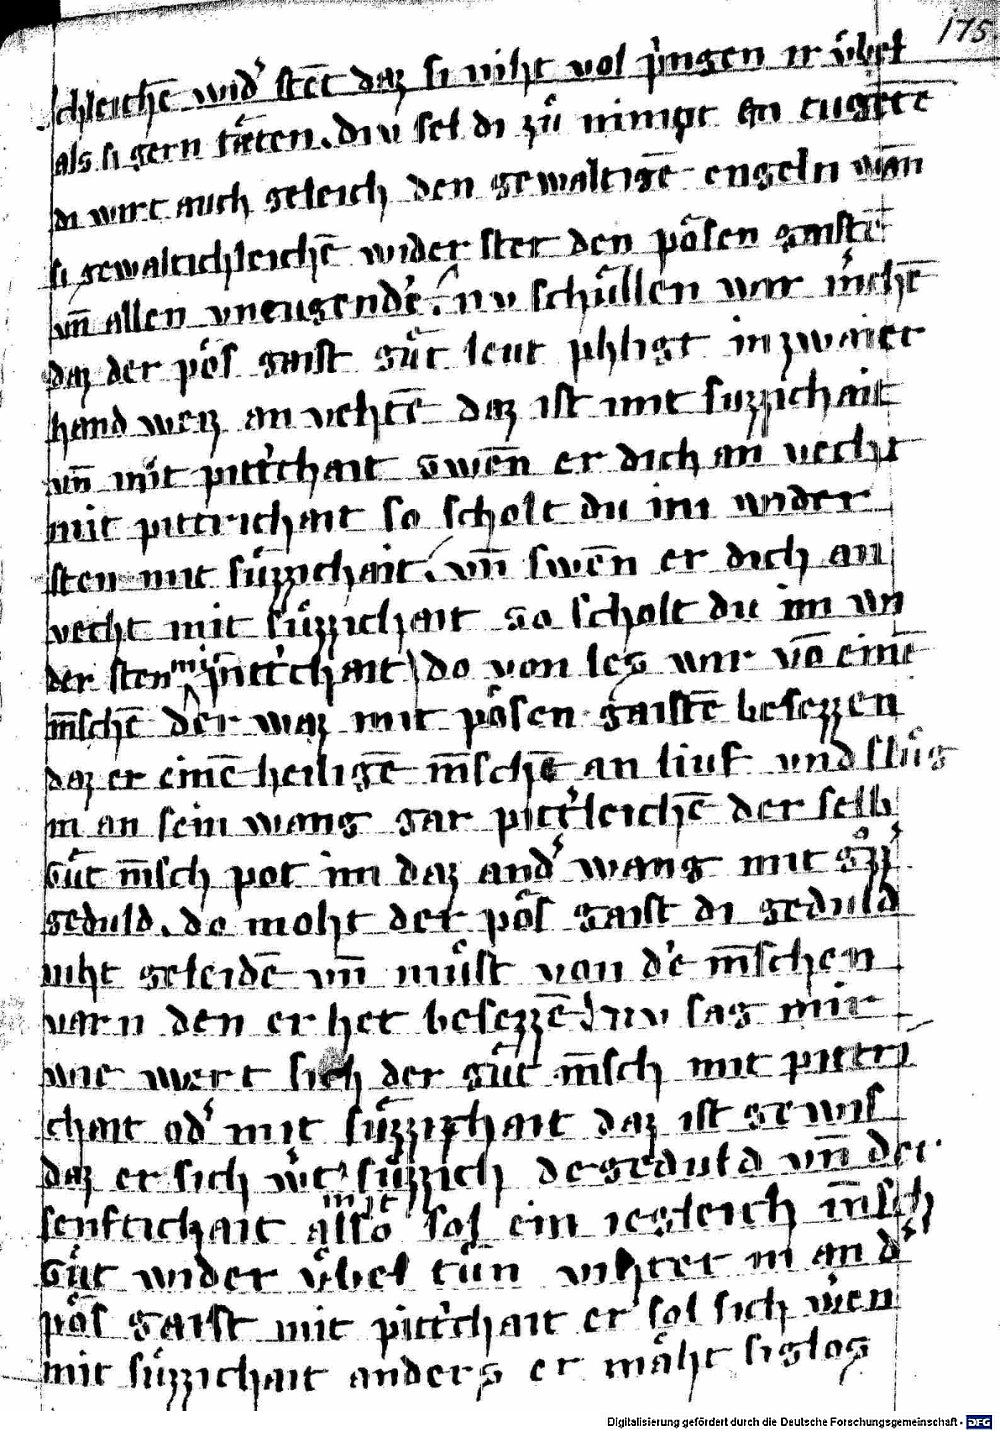 175
schleichē widˢ stēt daz si niht vol pringen ir v̈bel
als si gern tæten. diu sel di zů nimpt an tugēte
di wirt auch geleich den gewaltigē engeln wān
si gewaltichleichē wider stet den pôsen gaistē
vn̄ allen vntugendē. nv schüllen wir mˢchē
daz der pôs gaist gůt leut phligt in zwaier
hand weiz an vehtē daz ist mit suzzichait
vn̄ mit pittˢchait swēn er dich an vecht
mit pittrichait so scholt du im wider
sten mit sůzzichait. vn̄ swēn er dich an
vecht mit sůzzichait so scholt du im wi
der sten mit pittˢchait do von les wir vō einē
m̄schē der waz mit pôsen gaistē besezzen
daz er einē heiligē m̄schē an liuf vnd slůg
in an sein wang gar pittˢleichē der selb
gůt m̄sch pot im daz andˢ wang mit sůzzˢ
geduld. do moht der pôs gaist di geduld
niht geleidē vn̄ můst von dē m̄schen
varn den er het besezzē nv sag mir
wie wert sich der gůt m̄sch mit pittri
chait odˢ mit sůzzichait daz ist gewis
daz er sich wˢt sůzzich de geduld vn̄ der
senftichait mit also sol ein iegleich m̄sch
gůt wider v̈bel tůn vihtet in an dˢ
pôs gaist mit pittˢchait er sol sich wˢen
mit sůzzichait anders er mæht siglos
Digitalisierung gefördert durch die Deutsche Forschungsgemeinschaft - DFG